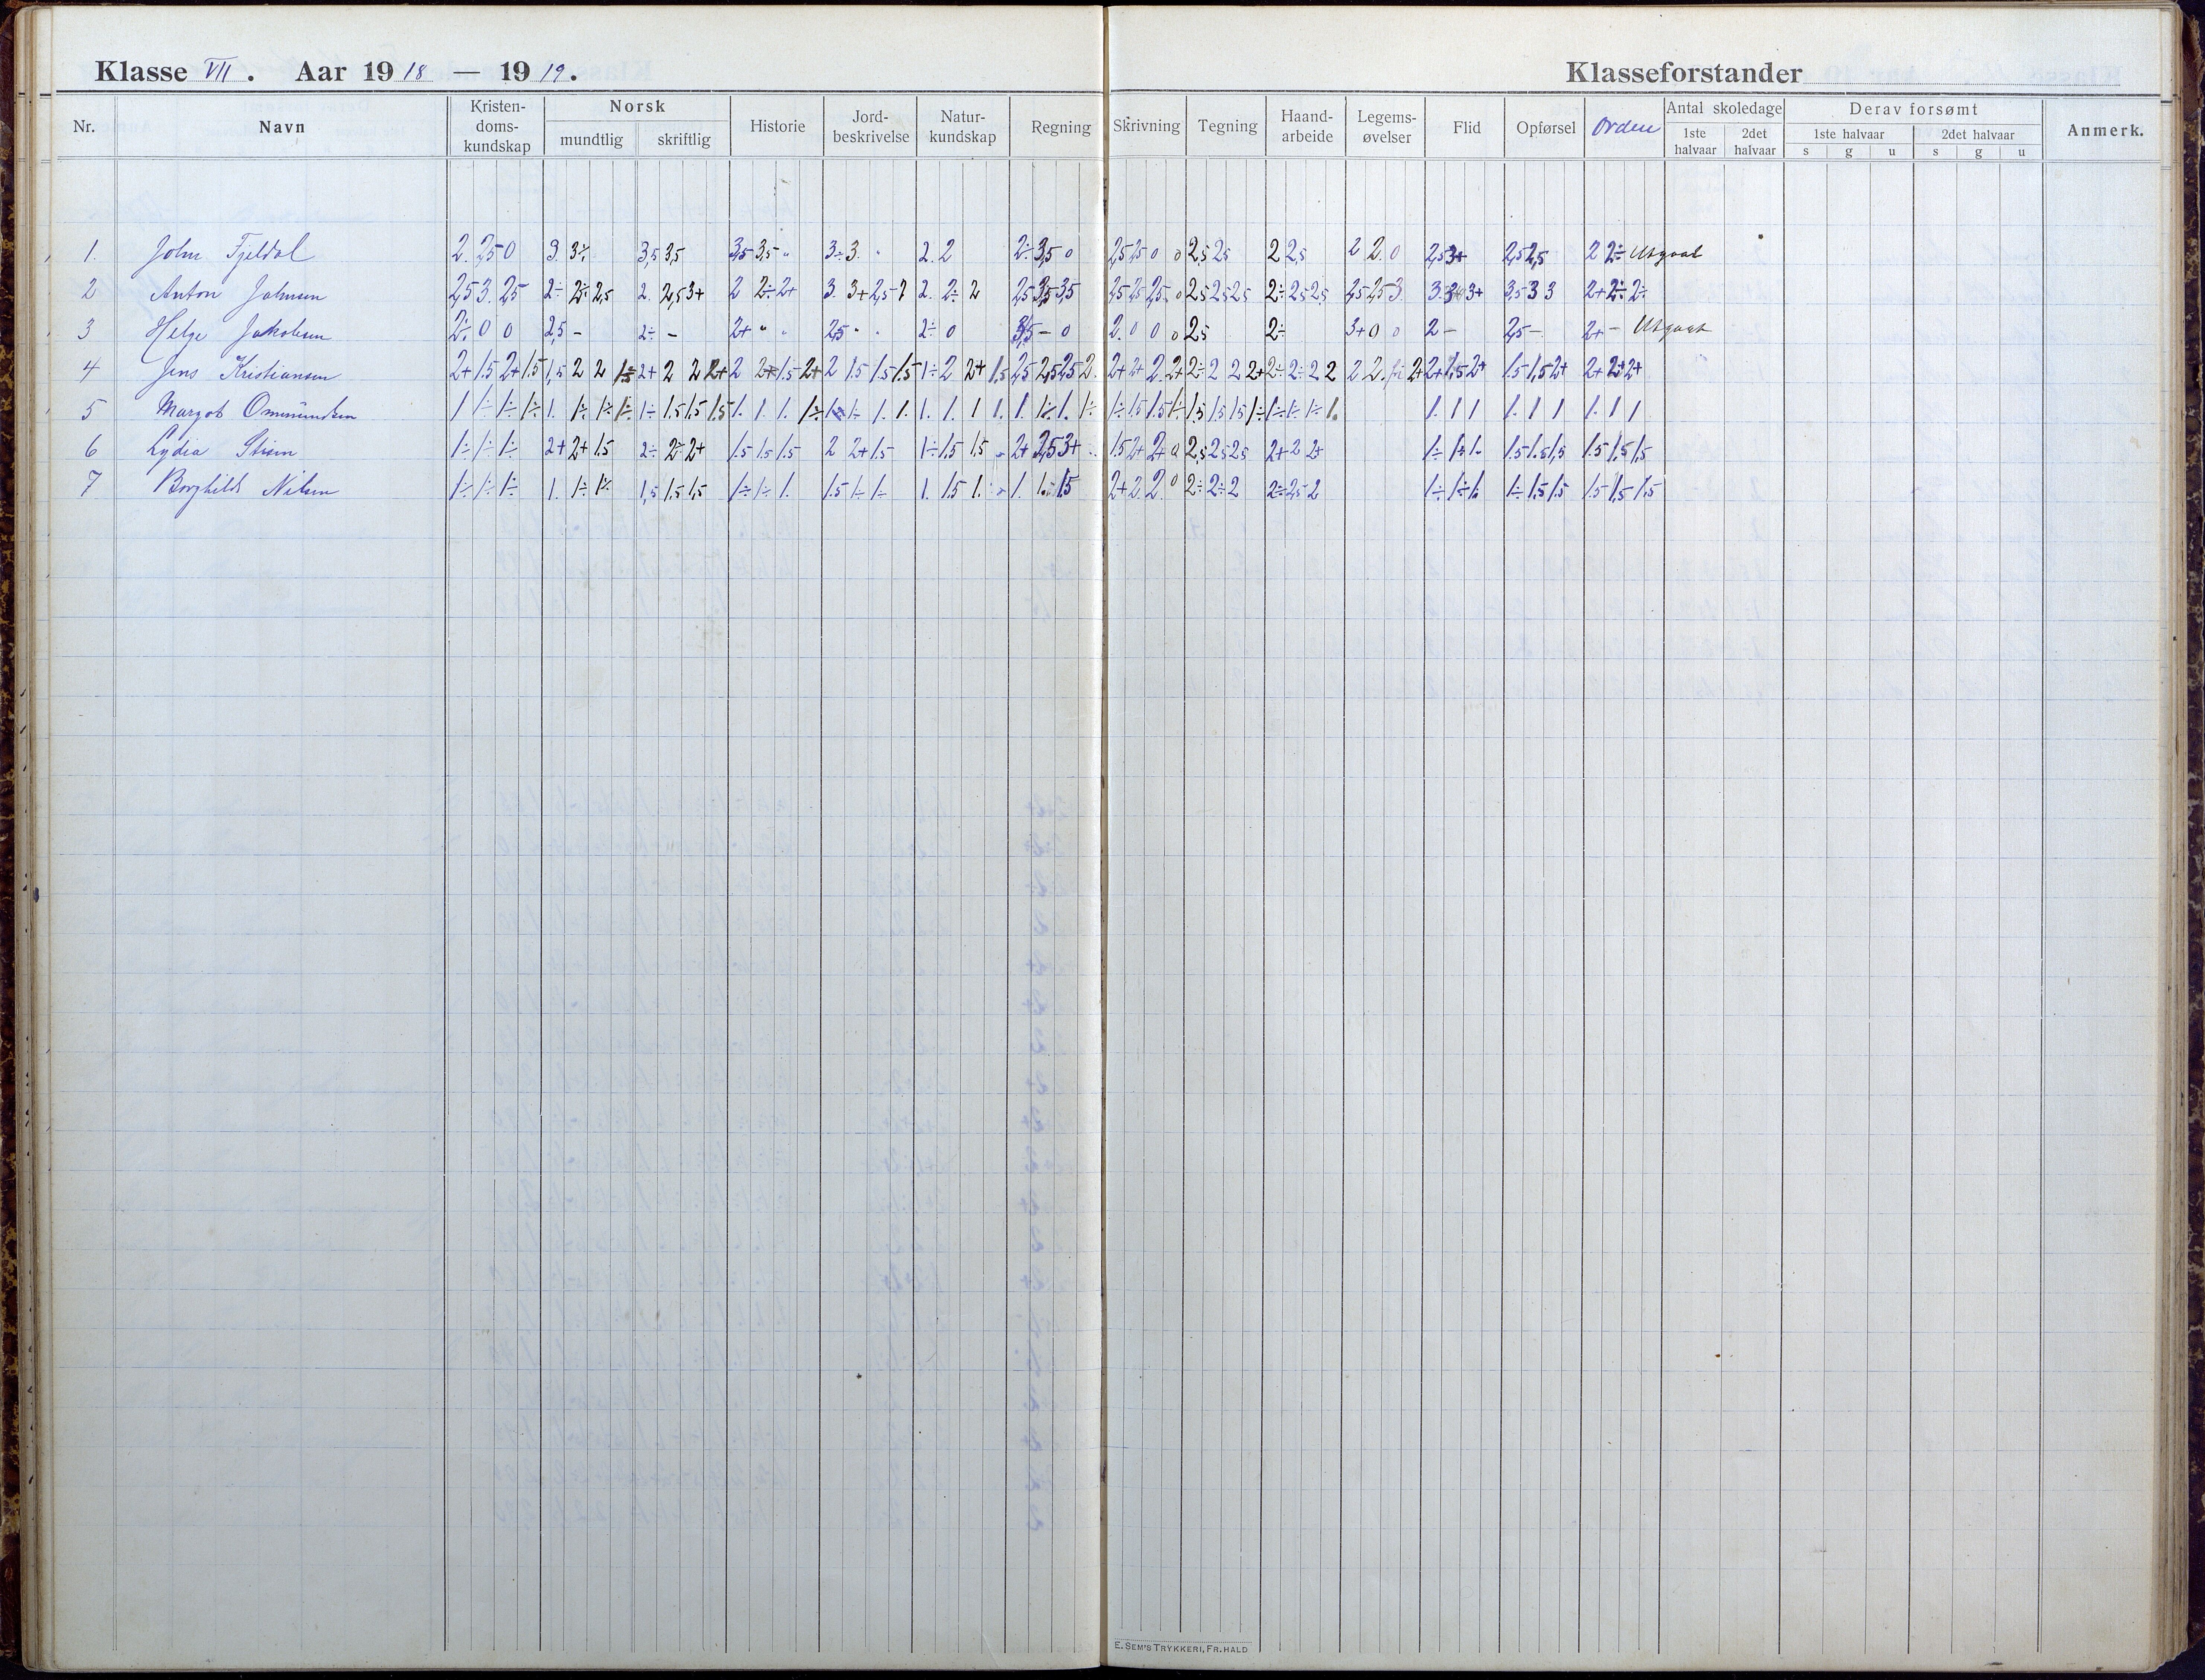 Klasse VII. Aar 1918 — 1919.
Klasseforstander
Nr. Navn Kristen-domskundskap Norsk mundtlig skriftlig Historie Jord-beskrivelse Natur-kundskap Regning Skrivning Tegning Haand-arbeide Legems-øvelser Flid Opførsel Orden Antal skoledage 1ste halvaar 2det halvaar Derav forsømt 1ste halvaar s g u 2det halvaar s g u Anmerk.
1. John Fjeldal 2. 2,5 0 3. 3÷ 3,5 3,5 3,5 3,5 " 3÷ 3. " 2. 2 2÷ 3,5 0 2,5 2,5 0 0 2,5 2,5 2 2,5 2 2. 0 2,5 3+ 2,5 2,5 2 2÷ Utgaat
2 Anton Johnsen 2,5 3. 2,5 2÷ 2÷ 2,5 2. 2,5 3+ 2 2÷ 2+ 3. 3+ 2,5 2. 2÷ 2 2,5 3,5 3,5 2,5 2,5 2,5 0 2,5 2,5 2,5 2÷ 2,5 2,5 2,5 2,5 3. 3. 3+ 3,5 3 3 2+ 2÷ 2÷
3 Helge Jakobsen 2÷ 0 0 2,5 - 2÷ - 2+ " " 2,5 " " 2÷ 0 3,5 - 0 2. 0 0 0 2,5 2÷ 3+ 0 0 2 - 2,5 - 2+ - Utgaat
4 Jens Kristiansen 2+ 1.5 2+ 1.5 1,5 2 2 2+ 2 2 2+ 2 2+ 1.5 2+ 2 1.5 1.5 1.5 1÷ 2 2+ 1,5 2,5 2,5 2,5 2. 2+ 2+ 2. 2+ 2÷ 2 2 2+ 2÷ 2÷ 2 2 2 2. 2+ 2+ 1,5 2+ 1.5 1,5 2+ 2+ 2+ 2+
5 Margot Ommundsen 1 1÷ 1÷ 1÷ 1. 1÷ 1÷ 1÷ 1÷ 1.5 1.5 1.5 1. 1. 1. 1÷ 1÷ 1÷ 1. 1. 1. 1. 1 1. 1. 1÷ 1. 1÷ 1÷ 1.5 1.5 1÷ 1.5 1.5 1.5 1÷ 1÷ 1÷ 1÷ 1. 1. 1 1 1. 1 1 1. 1 1
6 Lydia Stisen 1÷ 1÷ 1÷ 2+ 2+ 1.5 2÷ 2÷ 2+ 1.5 1.5 1.5 2 2+ 1.5 1÷ 1.5 1.5 2+ 2,5 3+ 1.5 2+ 2+ 0 2,5 2,5 2,5 2+ 2 2+ 1÷ 1÷ 1. 1.5 1.5 1,5 1.5 1.5 1,5
7 Borghild Nilsen 1÷ 1÷ 1÷ 1. 1÷ 1÷ 1,5 1.5 1,5 1÷ 1÷ 1. 1.5 1÷ 1÷ 1. 1.5 1. 1. 1.5 1.5 2+ 2. 2. 0 2÷ 2÷ 2 2÷ 2,5 2 1÷ 1÷ 1. 1÷ 1.5 1.5 1.5 1,5 1.5
E. SEM'S TRYKKERI, FR.HALD